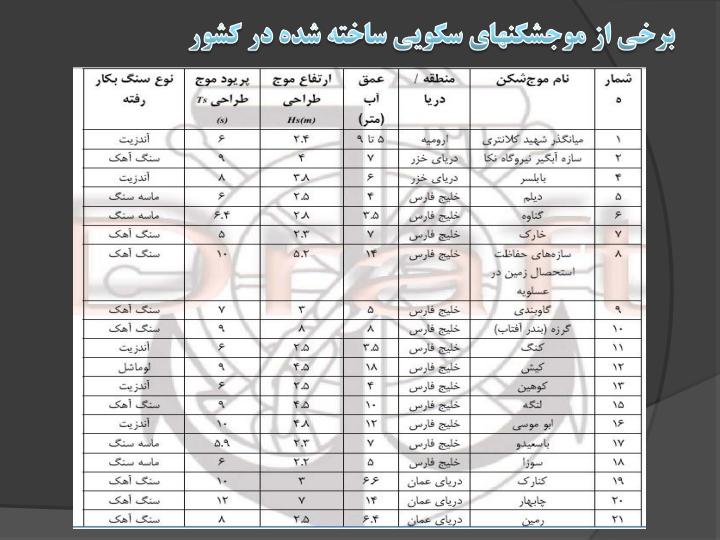 برخی از موجشکنهای سکویی ساخته شده در کشور
شماره نام موج‌شکن منطقه / دریا عمق آب (متر) ارتفاع موج طراحی Hs(m) پریود موج طراحی Ts (s) نوع سنگ بکار رفته
۱ میانگذر شهید کلانتری ارومیه ۵ تا ۹ ۲.۴ ۶ آندزیت
۲ سازه آبگیر نیروگاه نکا دریای خزر ۷ ۴ ۹ سنگ آهک
۴ بابلسر دریای خزر ۶ ۳.۸ ۸ آندزیت
۵ دیلم خلیج فارس ۴ ۲.۵ ۶ ماسه سنگ
۶ گناوه خلیج فارس ۳.۵ ۲.۸ ۶.۴ ماسه سنگ
۷ خارک خلیج فارس ۷ ۲.۳ ۵ سنگ آهک
۸ سازه‌های حفاظت استحصال زمین در عسلویه خلیج فارس ۱۴ ۵.۲ ۱۰ سنگ آهک
۹ گاوبندی خلیج فارس ۵ ۳ ۷ سنگ آهک
۱۰ گرزه (بندر آفتاب) خلیج فارس ۸ ۸ ۹ سنگ آهک
۱۱ کنگ خلیج فارس ۳.۵ ۲.۵ ۶ آندزیت
۱۲ کیش خلیج فارس ۱۸ ۴.۵ ۹ لوماشل
۱۳ کوهین خلیج فارس ۴ ۲.۵ ۶ آندزیت
۱۵ لنگه خلیج فارس ۱۰ ۴.۵ ۹ سنگ آهک
۱۶ ابو موسی خلیج فارس ۱۲ ۴.۸ ۱۰ آندزیت
۱۷ باسعیدو خلیج فارس ۷ ۲.۳ ۵.۹ ماسه سنگ
۱۸ سوزا خلیج فارس ۵ ۲.۲ ۶ ماسه سنگ
۱۹ کنارک دریای عمان ۶.۶ ۳ ۱۰ سنگ آهک
۲۰ چابهار دریای عمان ۱۴ ۷ ۱۲ سنگ آهک
۲۱ رمین دریای عمان ۶.۴ ۲.۵ ۸ سنگ آهک
Draft